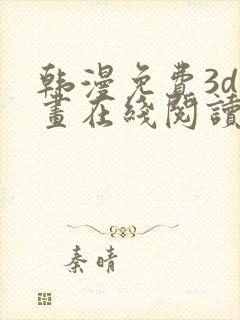 韩漫免费3d
画在线阅读
秦晴